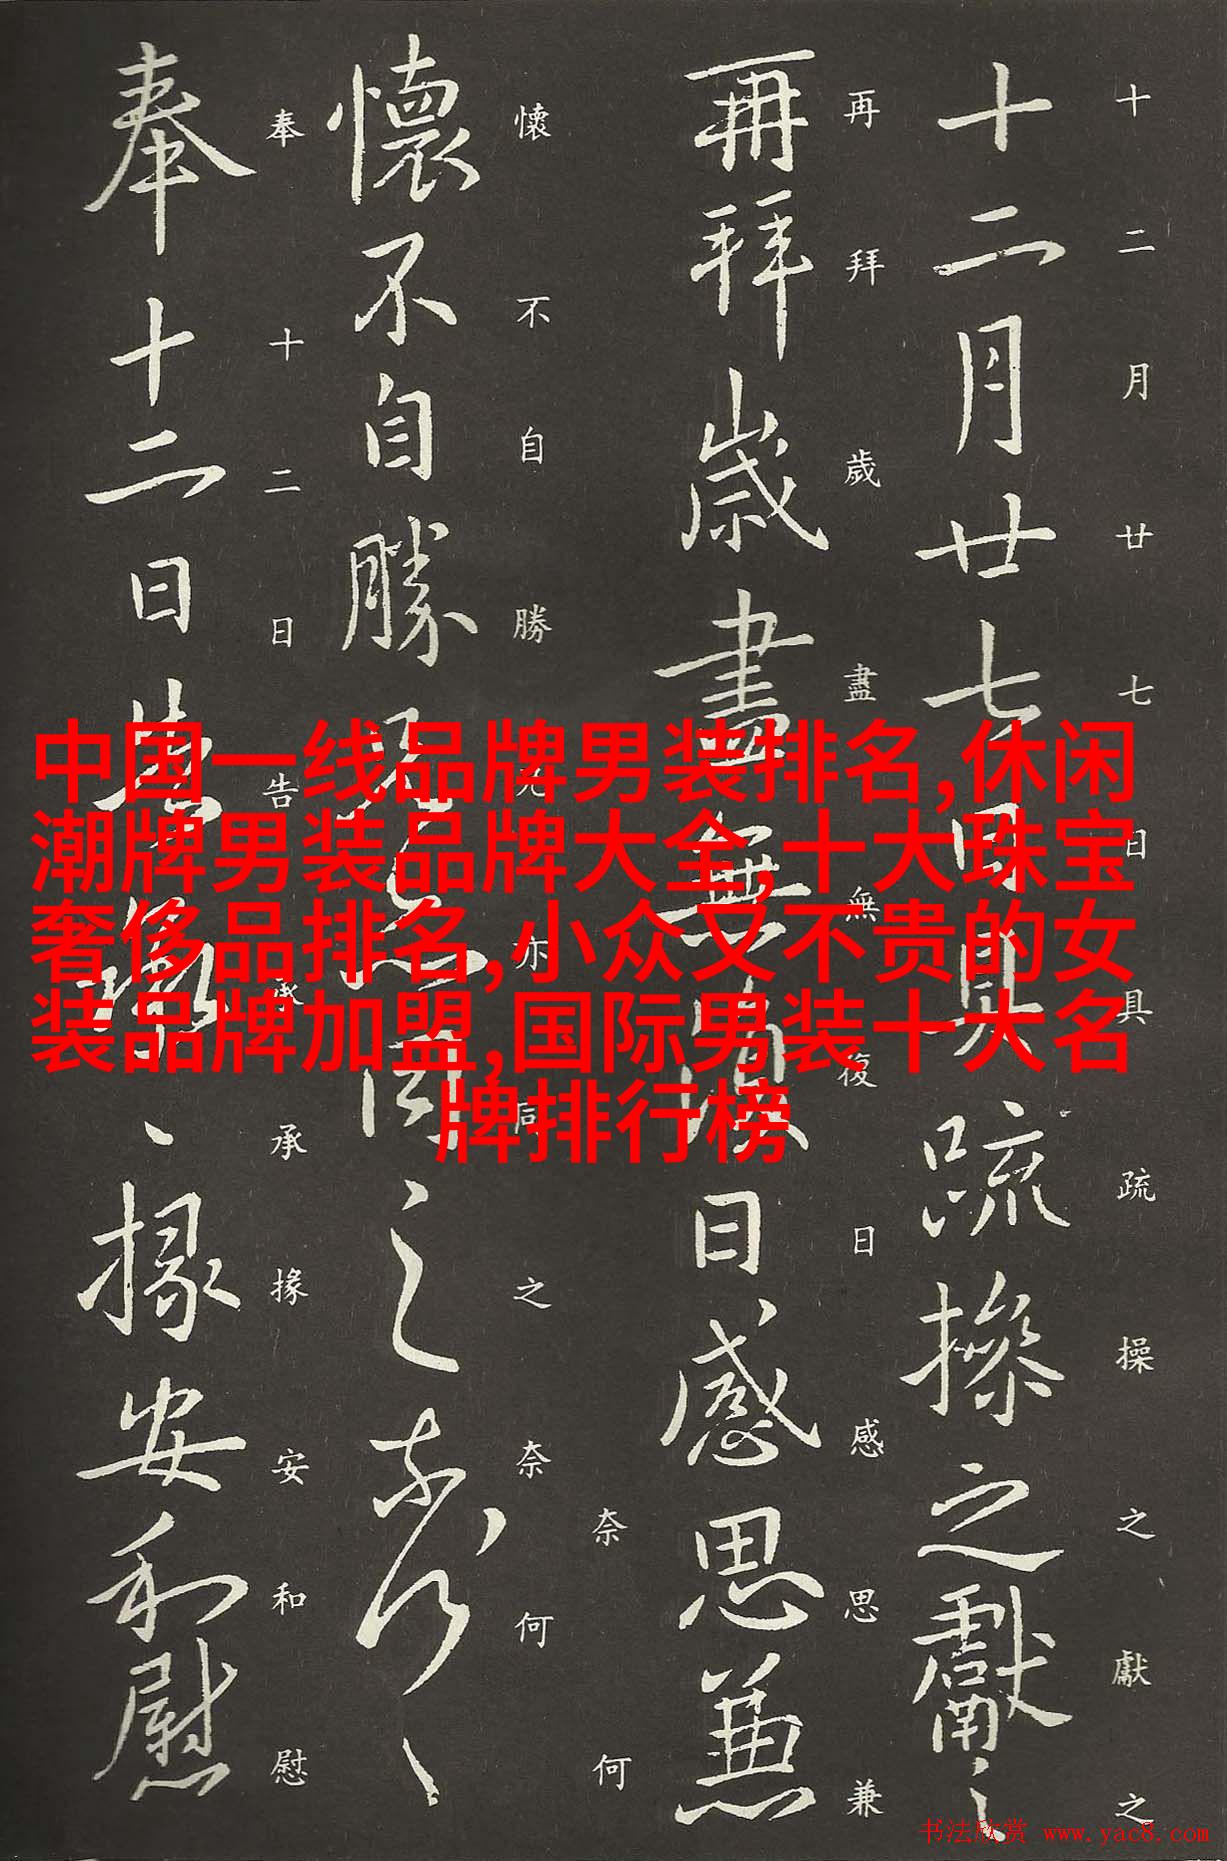 十二月廿七日具疏操之獻之
十二月廿七日具疏操之獻之
再拜歲盡無復日感思兼
再拜歲盡無復日感思兼
奈何
懷不自勝兄亦同之奈何
懷不自勝兄亦同之奈何〻
奉十二日告承承掾安和慰
奉十二日告承〻掾安和慰
中国一线品牌男装排名,休闲
潮牌男装品牌大全,十大珠宝
奢侈品排名,小众又不贵的女
装品牌加盟,国际男装十大名
牌排行榜
书法欣赏 www.yac8.com